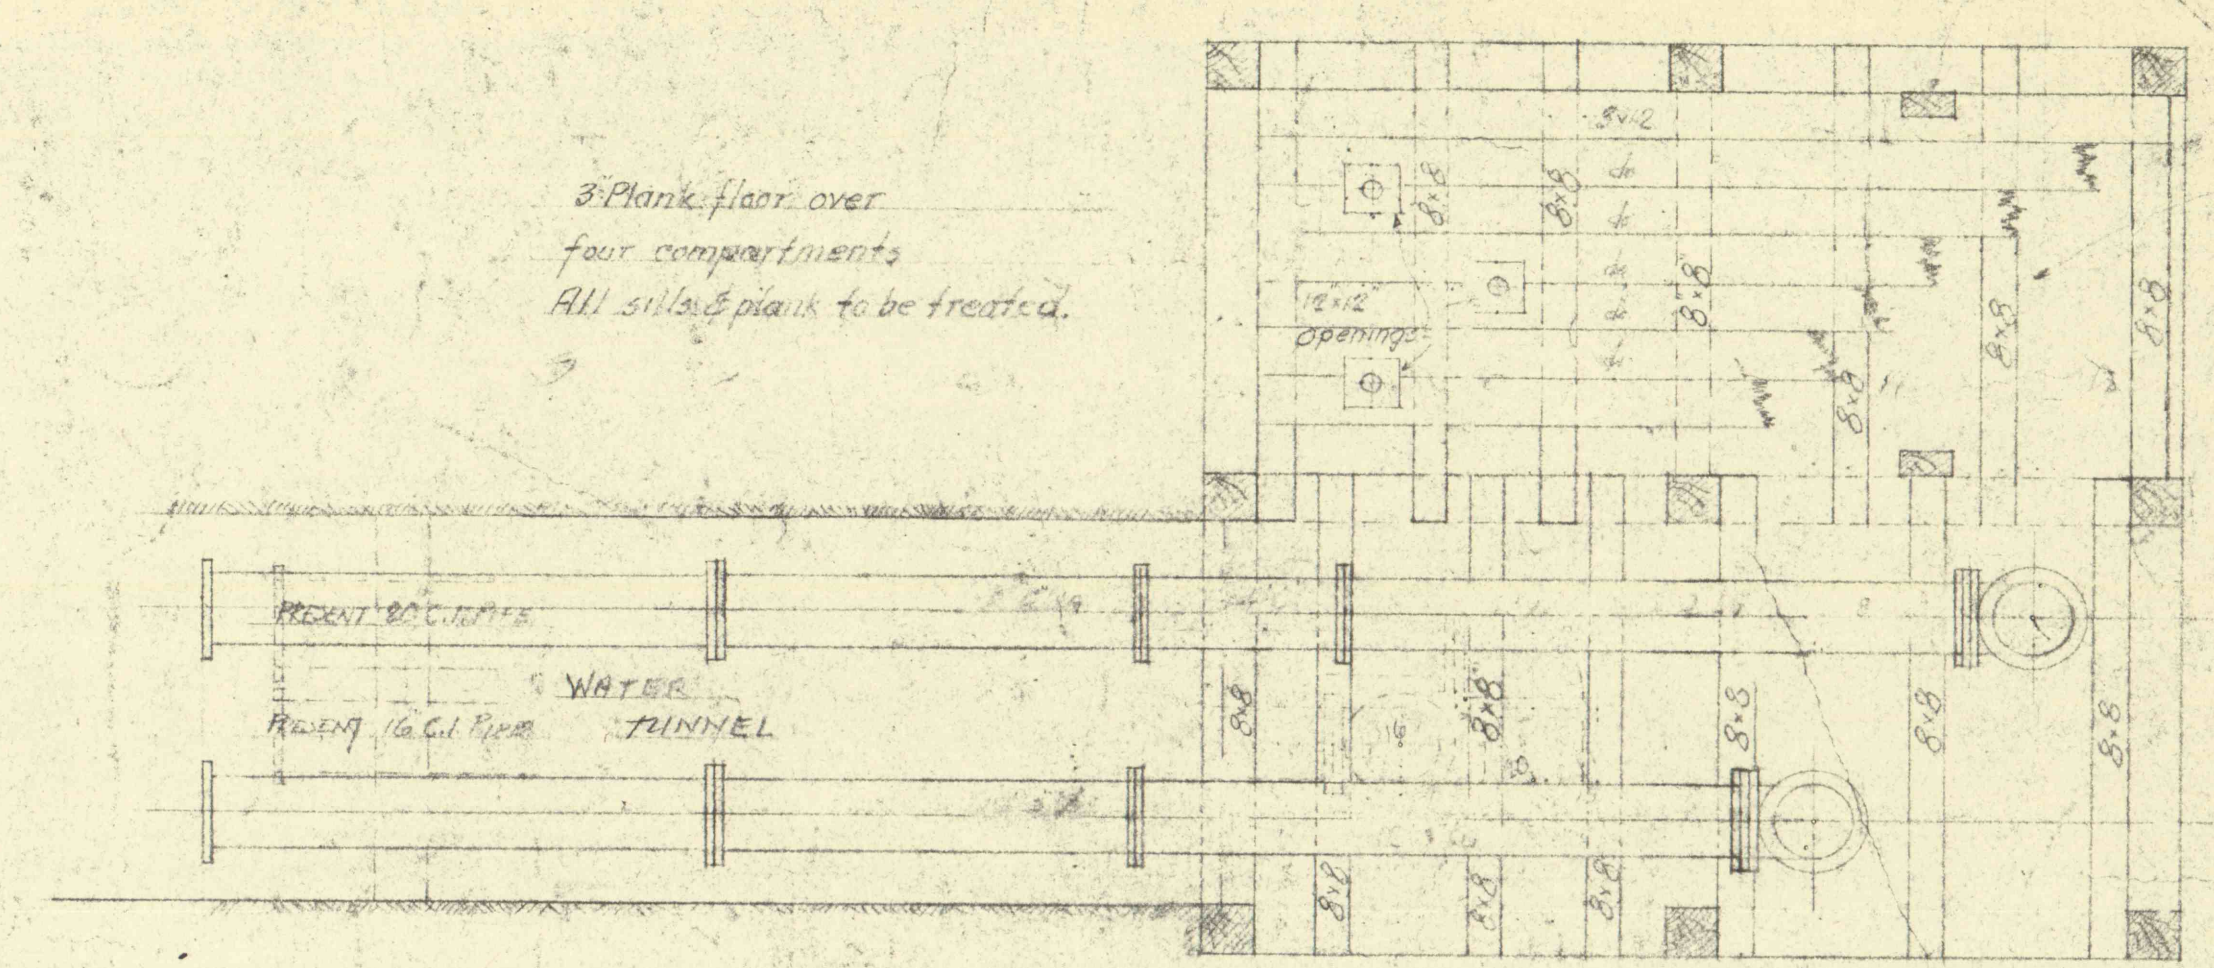 3" Plank floor over
four compartments
All sills & plank to be treated.
3x12
do
do
do
do
do
8x8
8x8
8x8
8x8
8x8
8x8
12"x12"
openings
PRESENT 20" C.I. PIPE
WATER
TUNNEL
PRESENT 16" C.I. PIPE
8x8
8x8
8x8
8x8
8x8
8x8
8x8
8x8